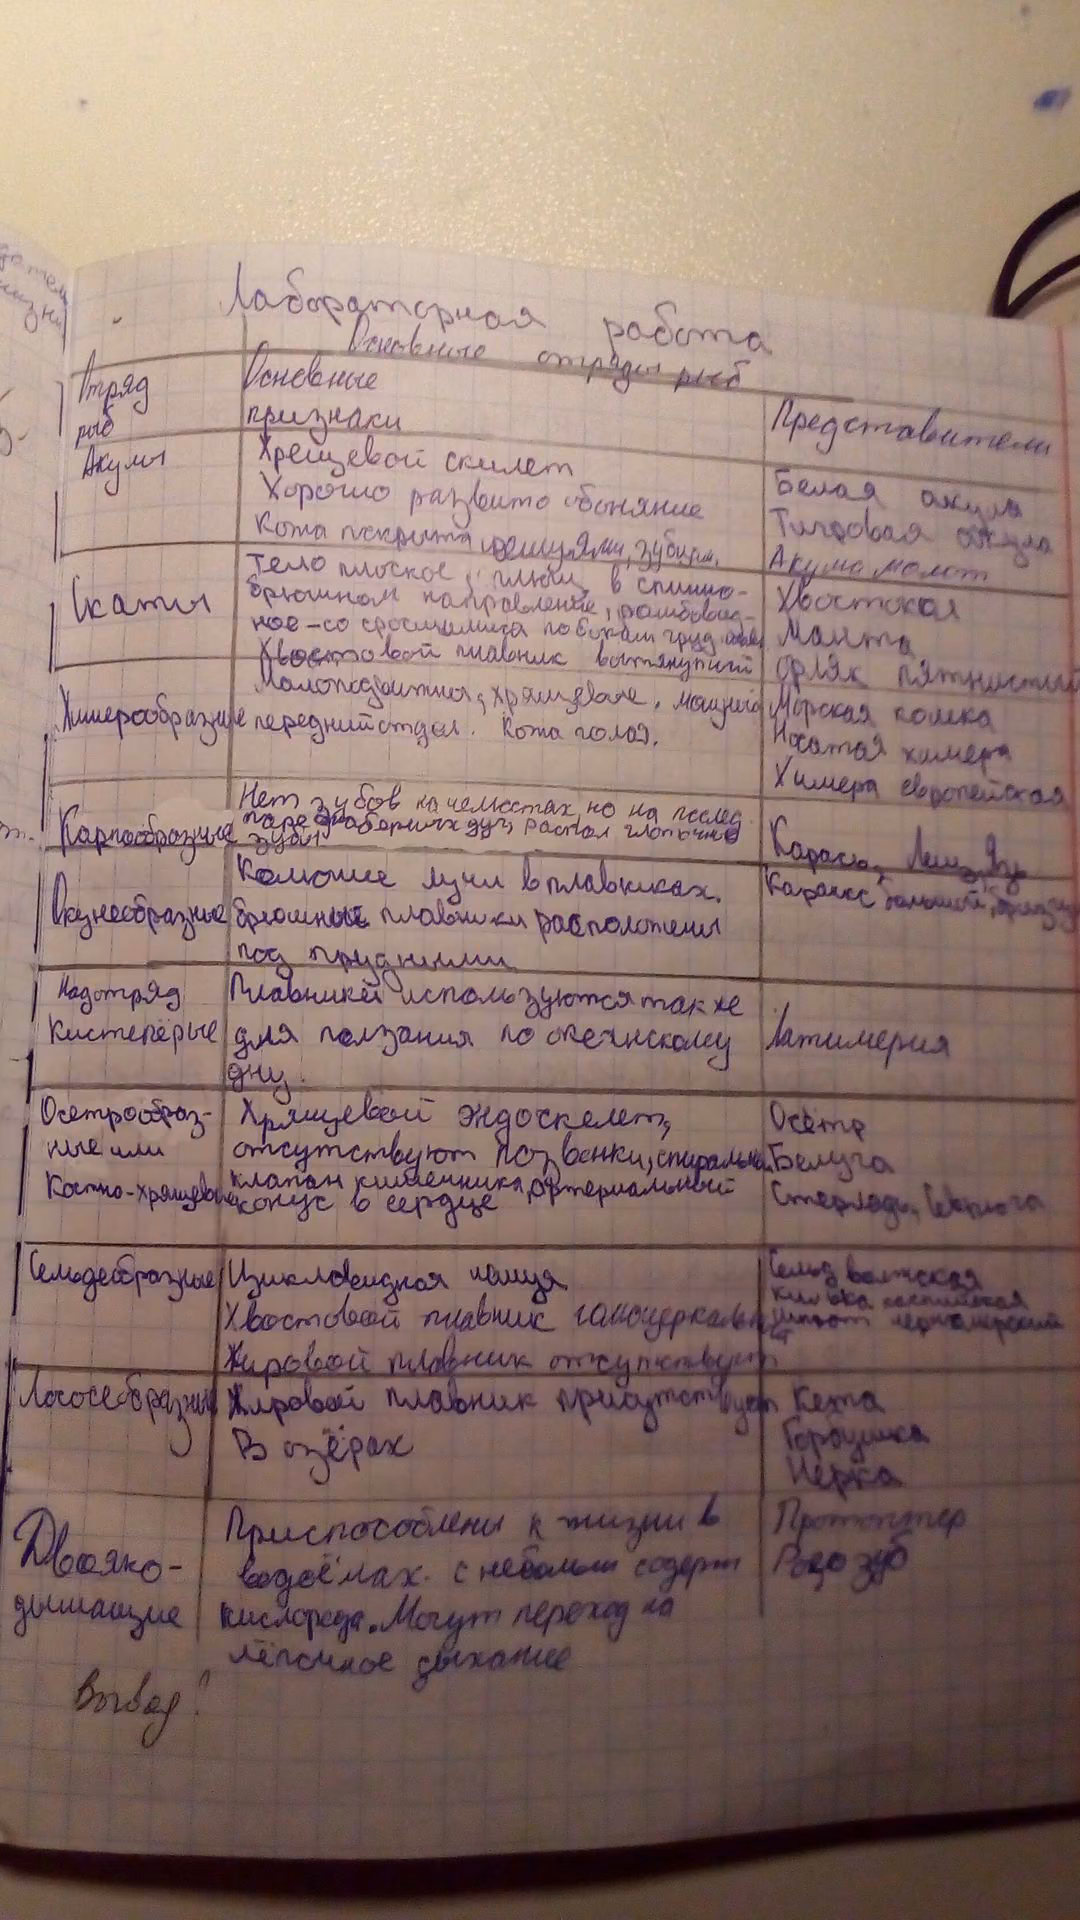 Лабораторная работа
Основные отряды рыб
Отряд рыб
Основные признаки
Представители
Акулы
Хрещевой скилет
Хорошо развито обоняние
Кожа покрыта чешуями, зубцам.
Белая акула
Тигровая акула
Акула молот
Скаты
Тело плоское, в спинно-
брюшном направление, ромбовид-
ное - со сросшимися по бокам груд.
Хвостовой плавник вытянутый
Хвостокол
Манта
Орляк пятнистый
Химерообразные
Малоподвижны, хрящевые,
передний отдел. Кожа голая.
Морская кошка
Носатая химера
Химера европейская
Карпообразные
Нет зубов на челюстах, но на послед.
паре жаберных дуг распол глоточные
зубы
Карась, Лещ, Язь
Окунеобразные
Колючие лучи в плавниках.
брюшные плавники расположены
под грудными
Каранкс большой,
Надотряд
Кистепёрые
Плавники используются также
для ползания по океанскому
дну.
Латимерия
Осетрообраз-
ные или
Костно-хрящевые
Хрящевой эндоскелет,
отсутствуют позвонки, спиральн.
клапан кишечника, артериальный
конус в сердце
Осётр
Белуга
Стерлядь, Севрюга
Сельдеобразные
Циклоидная чешуя
Хвостовой плавник
Жировой плавник отсутствует
Сельд волжская
Килька каспийская
шпрот черноморский
Лососеобразные
Жировой плавник присутствует
В озёрах
Кета
Горбушка
Нерка
Двояко-
дышащие
Приспособлены к жизни в
водоёмах. с небольш содерж
кислорода. Могут переход на
лёгочное дыхание
Протоптер
Рогозуб
Вывод?